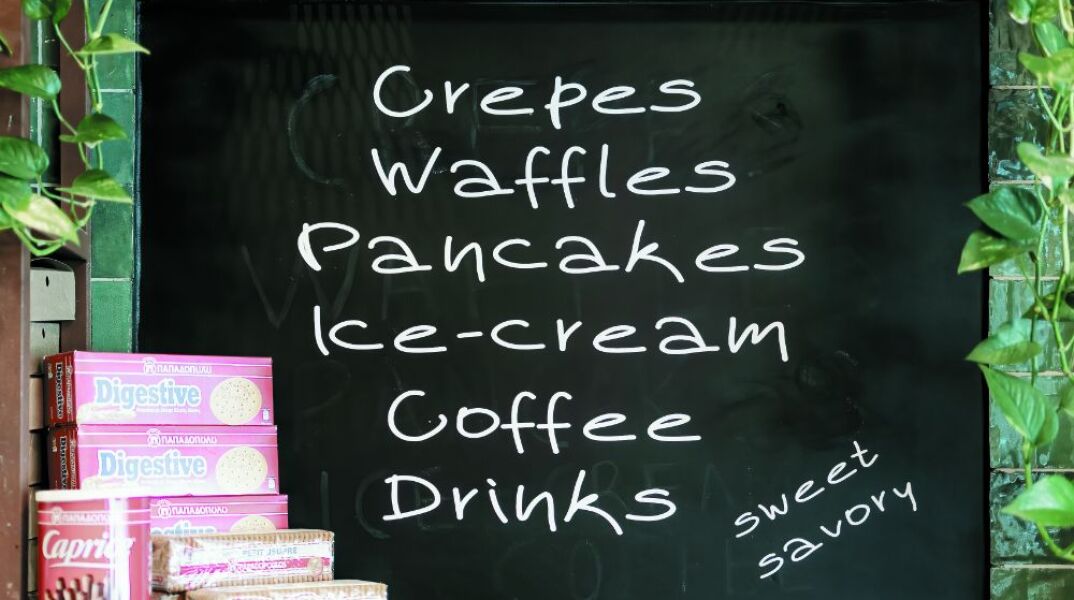 Crepes
Waffles
Pancakes
Ice-cream
Coffee
Drinks
sweet
savory
ΠΑΠΑΔΟΠΟΥΛΟΥ
Digestive
Digestive
ΠΑΠΑΔΟΠΟΥΛΟΥ
Digestive
Digestive
ΠΑΠΑΔΟΠΟΥΛΟΥ
Caprice
PETIT